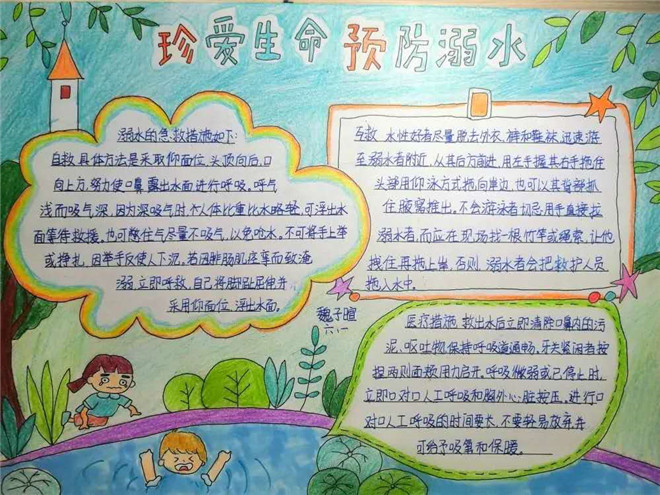 珍爱生命 预防溺水
溺水的急救措施如下:
自救具体方法是采取仰面位,头顶向后,口
向上方,努力使口鼻露出水面进行呼吸,呼气
浅而吸气深,因为深吸气时,个人体比重比水略轻,可浮出水
面等待救援。也可憋住气尽量不吸气,以免呛水。不可将手上举
或挣扎,因举手反使人下沉,若因腓肠肌痉挛而致淹
溺,立即呼救,自己将脚趾屈伸并
采用仰面位,浮出水面。
魏子暄
六.1
互救 水性好者尽量脱去外衣、裤和鞋袜,迅速游
至溺水者附近,从其后方前进,用左手握其右手拖住
头部用仰泳方式拖向岸边,也可以其背部抓
住腋窝推出。不会游泳者切忌用手直接拉
溺水者,而应在现场找一根竹竿或绳索,让他
拽住再拖上岸。否则,溺水者会把救护人员
拖入水中.
医疗措施,救出水后立即清除口鼻内的污
泥、呕吐物,保持呼吸道通畅,牙关紧闭者按
捏两则面颊用力启开,呼吸微弱或已停止时,
立即口对口人工呼吸和胸外心脏按压,进行口
对口人工呼吸的时间要长,不要轻易放弃,并
可给予吸氧和保暖。